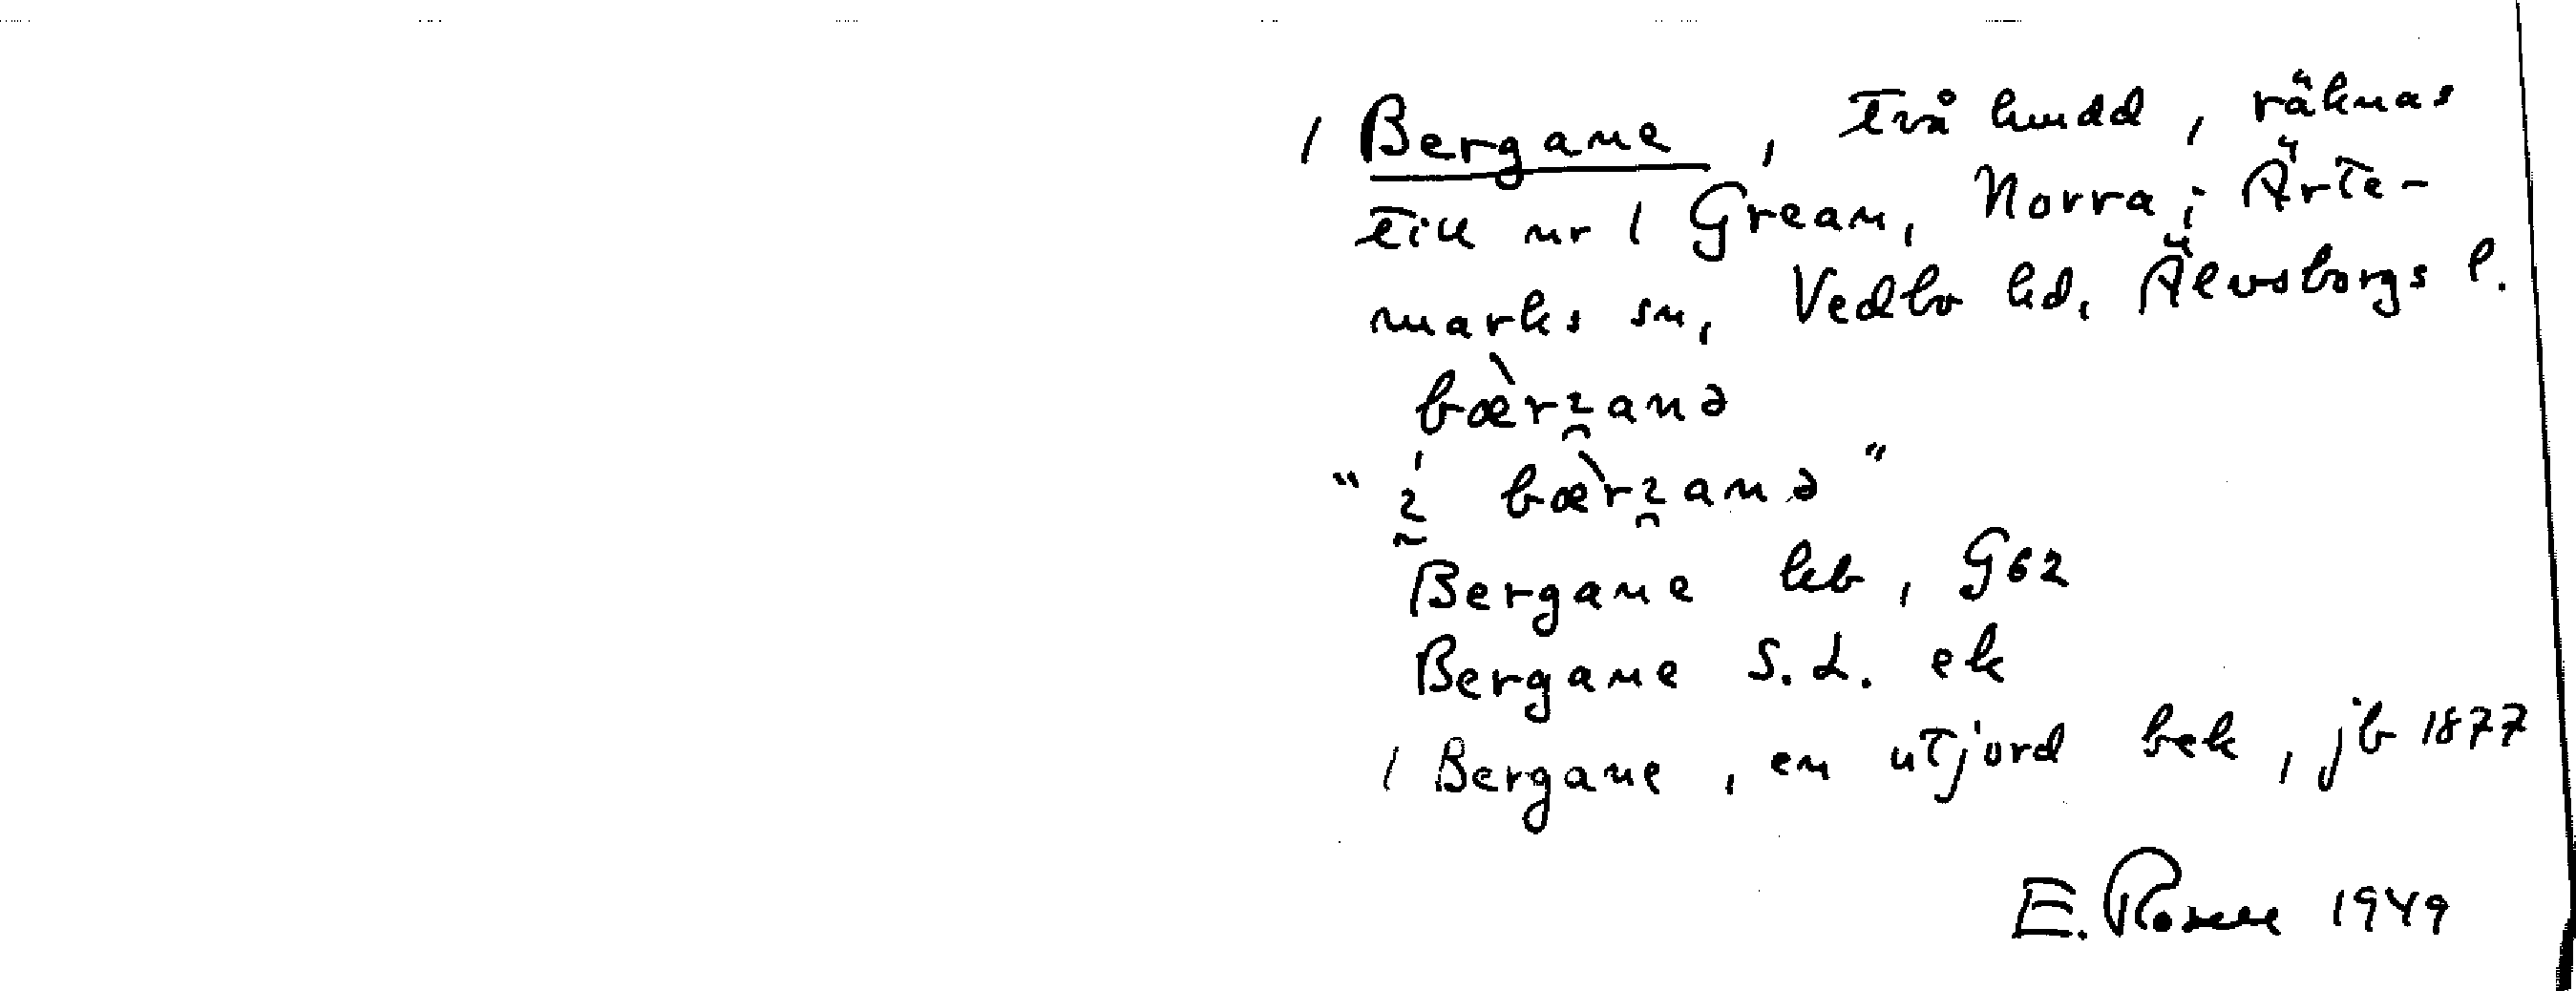 1 Bergane, två hmdd, räknas
till nr 1 Grean, Norra i Ärte-
marks sn, Vedbo hd, Älvsborgs l.
bæ̀rɀanə
"ɀ́ bæ̀rɀanə"
Bergane kb, G62
Bergane S.L. ek
1 Bergane, en utjord bek, jb 1877
E. Rosell 1949